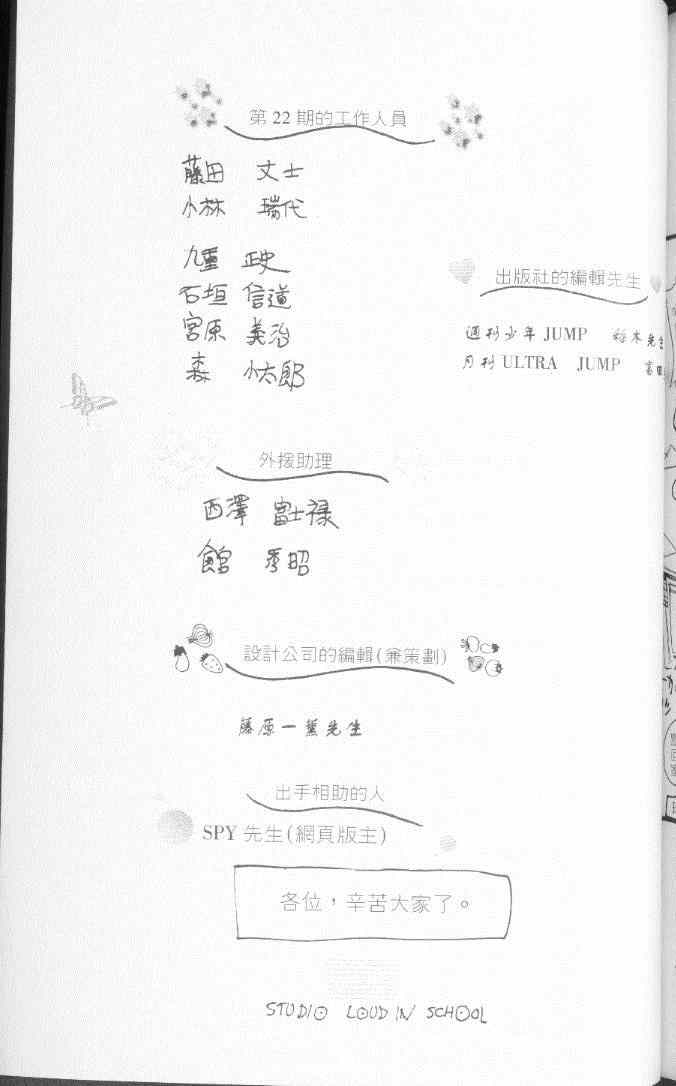 第 22 期的工作人員
藤田 丈士
小林 瑞代
九重 正史
石垣 信道
宮原 義治
森 小太郎
出版社的編輯先生
週刊少年 JUMP 木先生
月刊 ULTRA JUMP
外援助理
西澤 富士禄
館 秀昭
設計公司的編輯(兼策劃)
藤原一 先生
出手相助的人
SPY 先生(網頁版主)
各位，辛苦大家了。
STUDIO LOUD IN SCHOOL